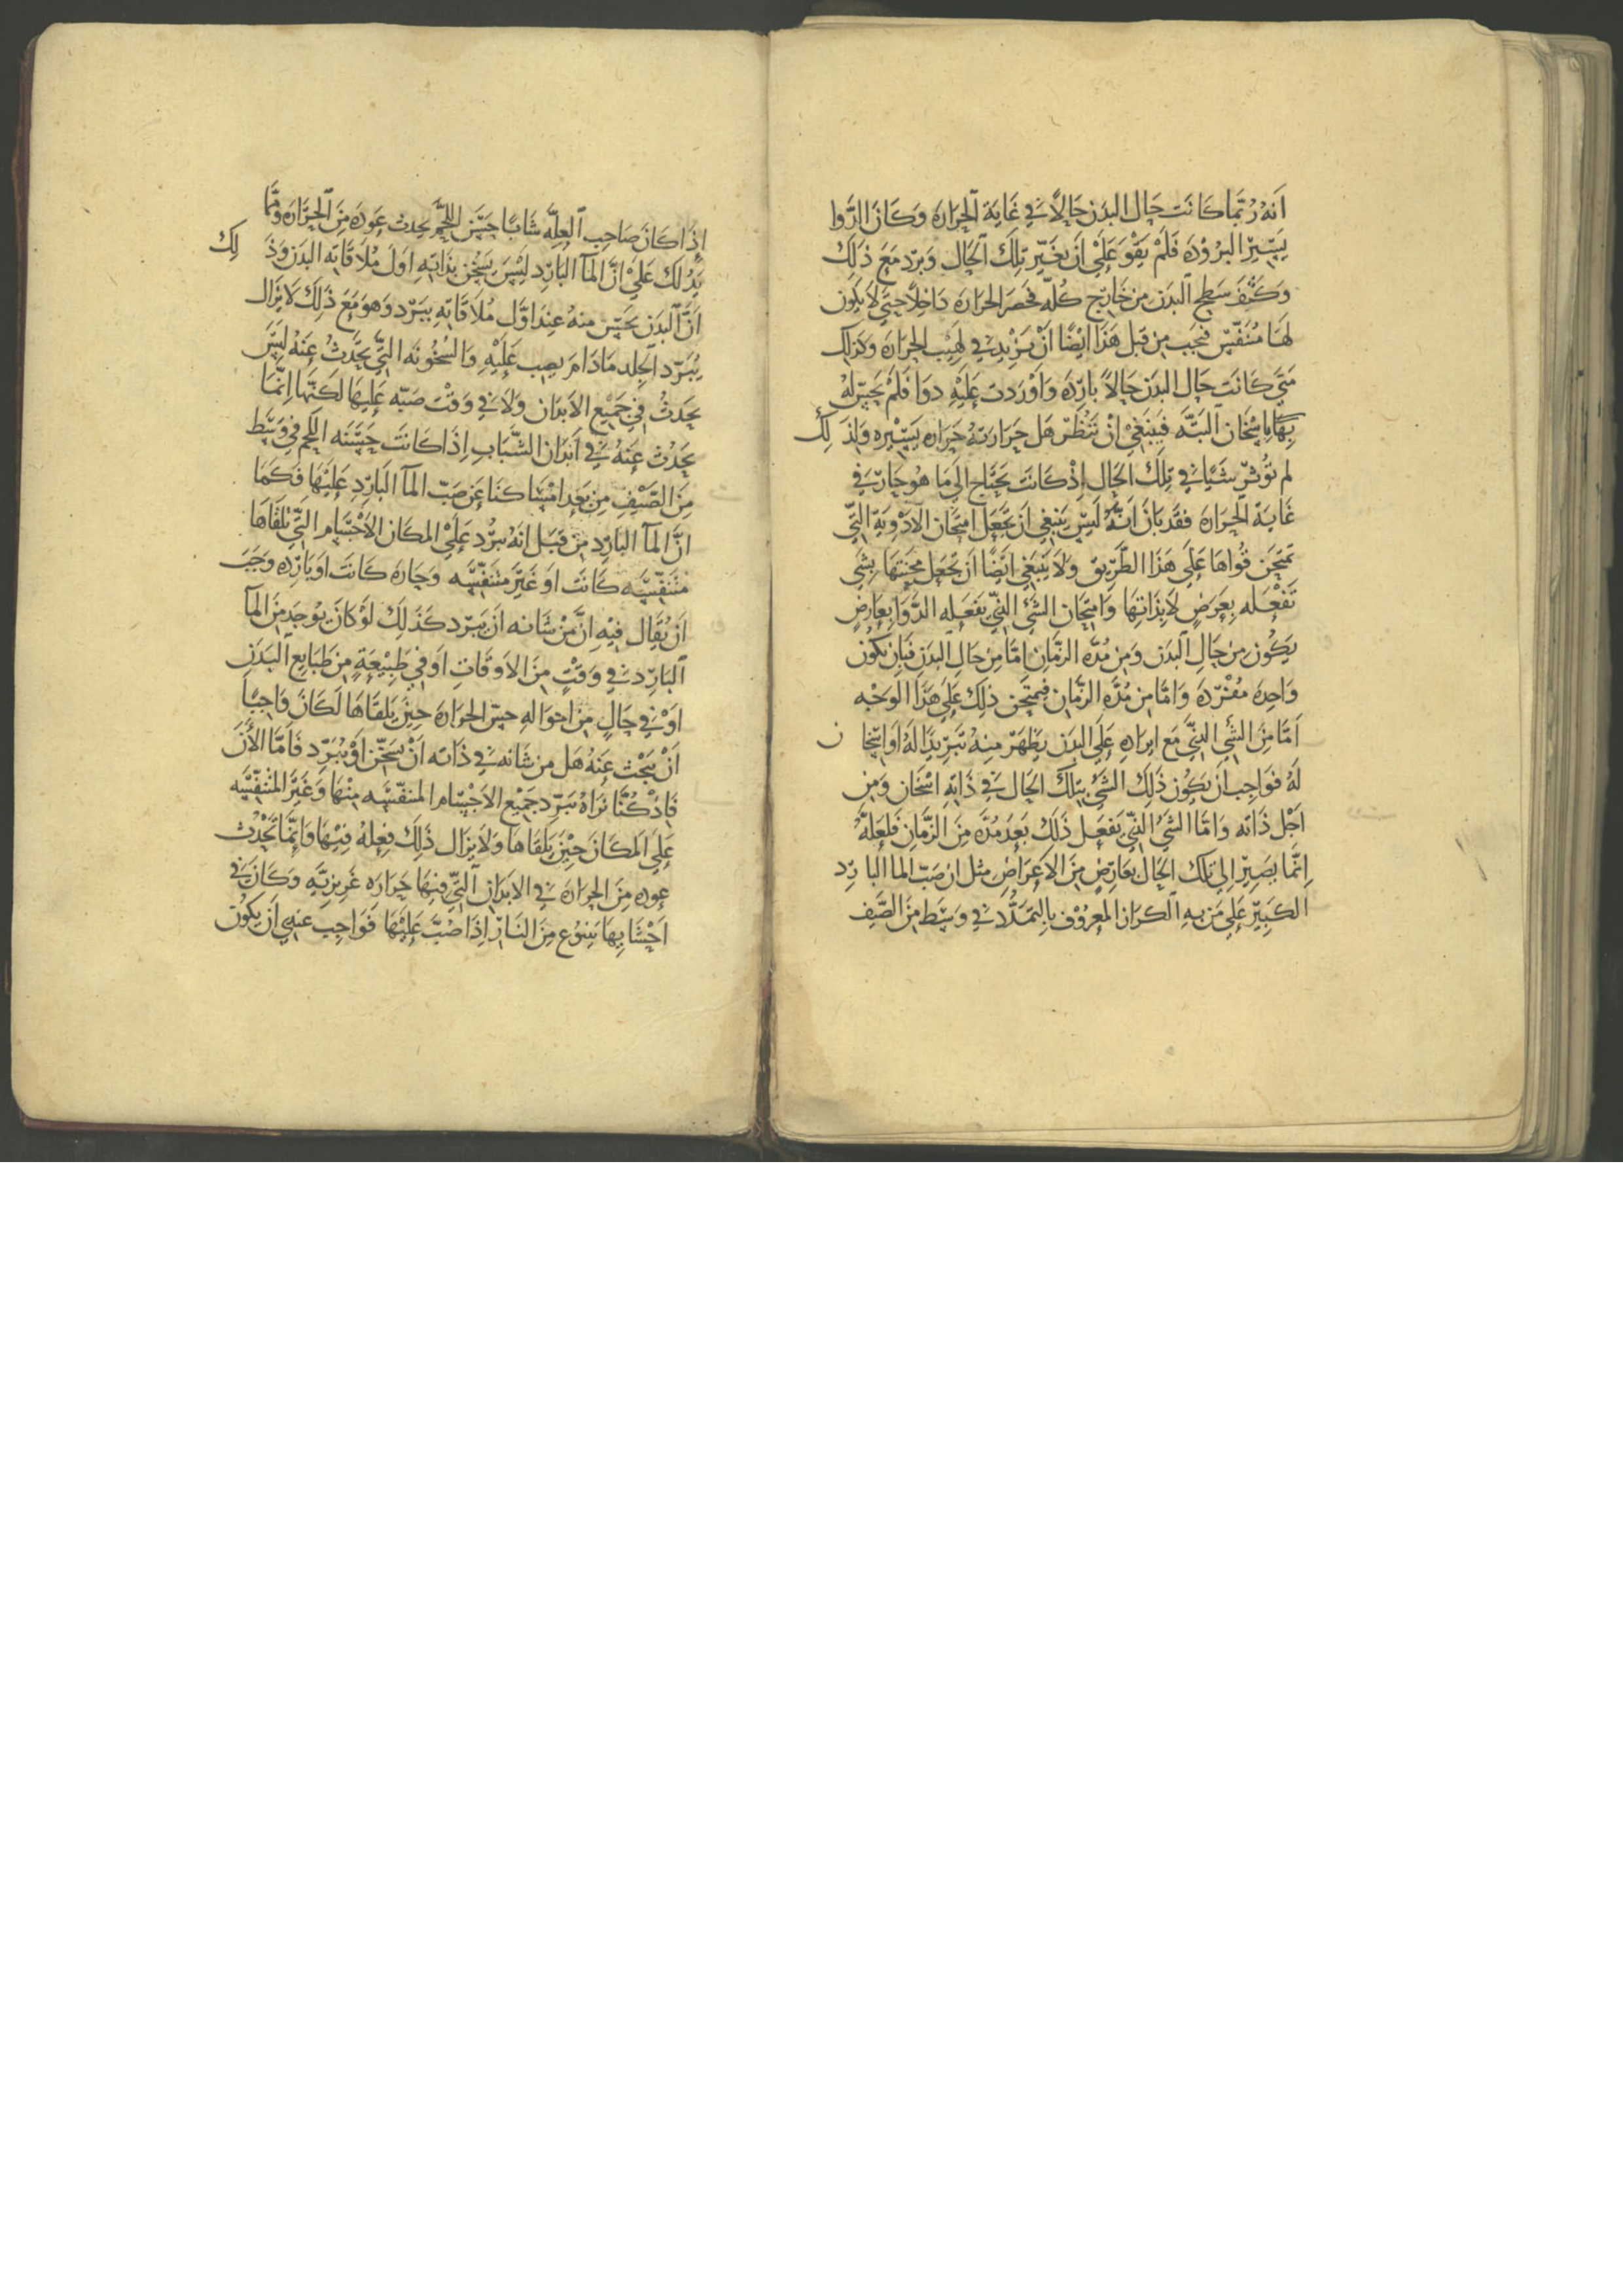 انه ربما كانت حال البدن حالا في غاية الحرارة وكان الدوا
يسير البرودة فلم يقو على أن يغير تلك الحال وبرد مع ذلك
وكثف سطح البدن من خارج كله فحصر الحرارة داخلا حتى لا يكون
لها متنفس فيجب من قبل هذا ايضا أن يزيد في لهيب الحرارة وكذلك
متى كانت حال البدن حالا باردة واوردت عليه دوا فلم يحس له
بها باسخان البتة فينبغي ان تنظر هل حرارته حرارة يسيرة ولذلك
لم تؤثر شيا في تلك الحال إذ كانت تحتاج الى ما هو حار في
غاية الحرارة فقد بان انه ليس ينبغي ان تجعل امتحان الادوية التي
تمتحن قواها على هذا الطريق ولا ينبغي ايضا ان تجعل محنتها بشي
تفعله بعرض لا بذاتها وامتحان الشي الذي يفعله الدوا بعارض
يكون من حال البدن ومن مدة الزمان اما من حال البدن فبان يكون
واحدة مفردة واما من مدة الزمان فيمتحن ذلك على هذا الوجه
اما من الشي الذي مع ايراده على البدن يظهر منه تبريدا له او اسخان
له فواجب ان يكون ذلك الشي بتلك الحال في ذاته اسخان ومن
اجل ذاته واما الشي الذي يفعل ذلك بعد مدة من الزمان فلعله
انما يصير الى تلك الحال بعارض من الاعراض مثل ان صب الما البارد
الكبير على من به الكزاز المعروف بالتمدد في وسط من الصيف
إذا كان صاحب العلة شابا حسن اللحم يحدث عودة من الحرارة ومما
يدلك على ان الما البارد ليس يسخن بذاته اول ملاقاته البدن وذلك
ان البدن يحس منه عند اول ملاقاته ببرد وهو مع ذلك لا يزال
يبرد الجلد ما دام يصب عليه والسخونة التي تحدث عنه ليس
يحدث في جميع الابدان ولا في وقت صبه عليها لكنها انما
يحدث عنه في ابدان الشباب اذا كانت حسنه اللحم في وسط
من الصيف من بعد امساكنا عن صب الما البارد عليها فكما
ان الما البارد من قبل انه يبرد على المكان الاجسام التي تلقاها
متنفسة كانت او غير متنفسة وحارة كانت او باردة وجب
ان يقال فيه ان من شانه ان يبرد كذلك لو كان يوجد من الما
البارد في وقت من الاوقات او في طبيعة من طبايع البدن
او في حال من احواله حس الحرارة حين يلقاها لكان واجبا
ان يبحث عنه هل من شانه في ذاته ان يسخن او يبرد فاما الأن
فاذ كنا نراه يبرد جميع الاجسام المتنفسة منها وغير المتنفسة
على المكان حين يلقاها ولا يزال ذلك فعله فيها وانما تحدث
عودة من الحرارة في الابدان التي فيها حرارة غريزية وكان في
احشايها ينبوع من النار اذا صب عليها فواجب عندي ان يكون